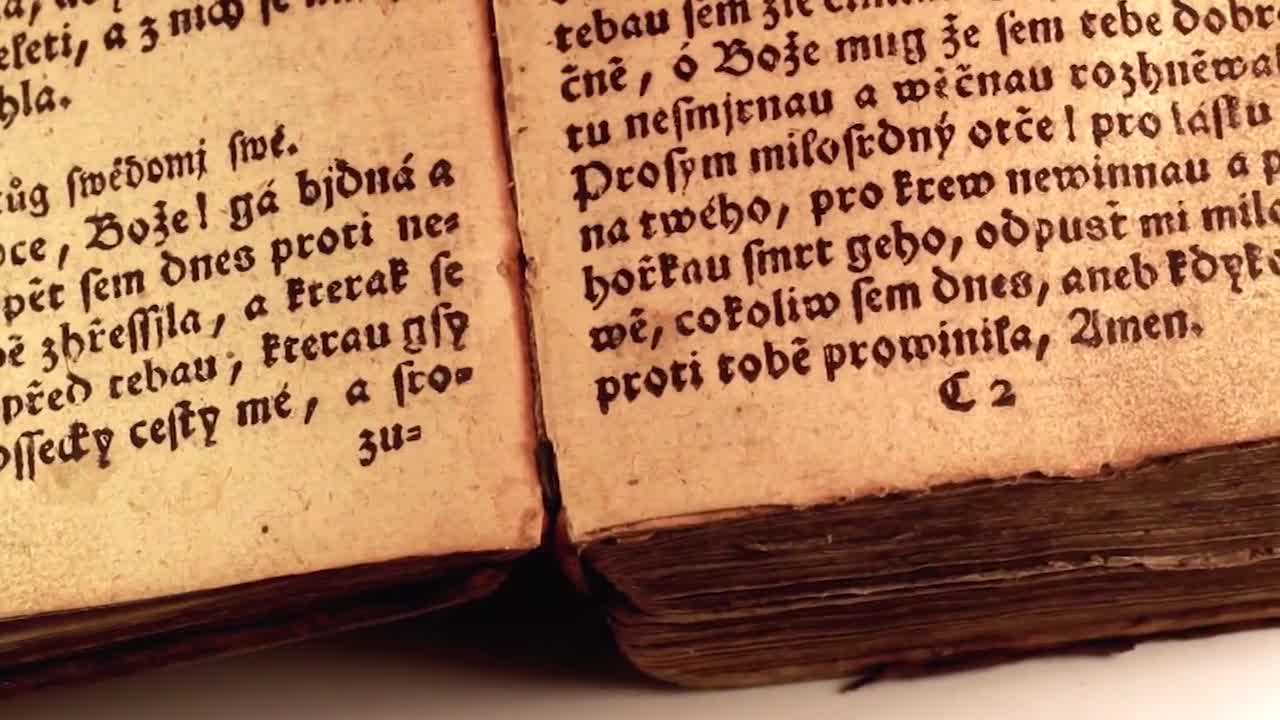 a z nich se
hla.
swédomj swé.
Bože! gá bjdná a
sem dnes proti ne=
zhřessyla, a kterak se
před tebau, kterau gsy
cesty mé, a sro=
zu=
tebau sem zle
čně, ó Bože mug že sem tebe
tu nesmjrnau a wěčnau
Prosym milosrdný otče! pro lásku
na twého, pro krew newinnau a
hořkau smrt geho, odpusť mi
wě, cokoliw sem dnes, aneb
proti tobě prowinila, Amen.
C 2